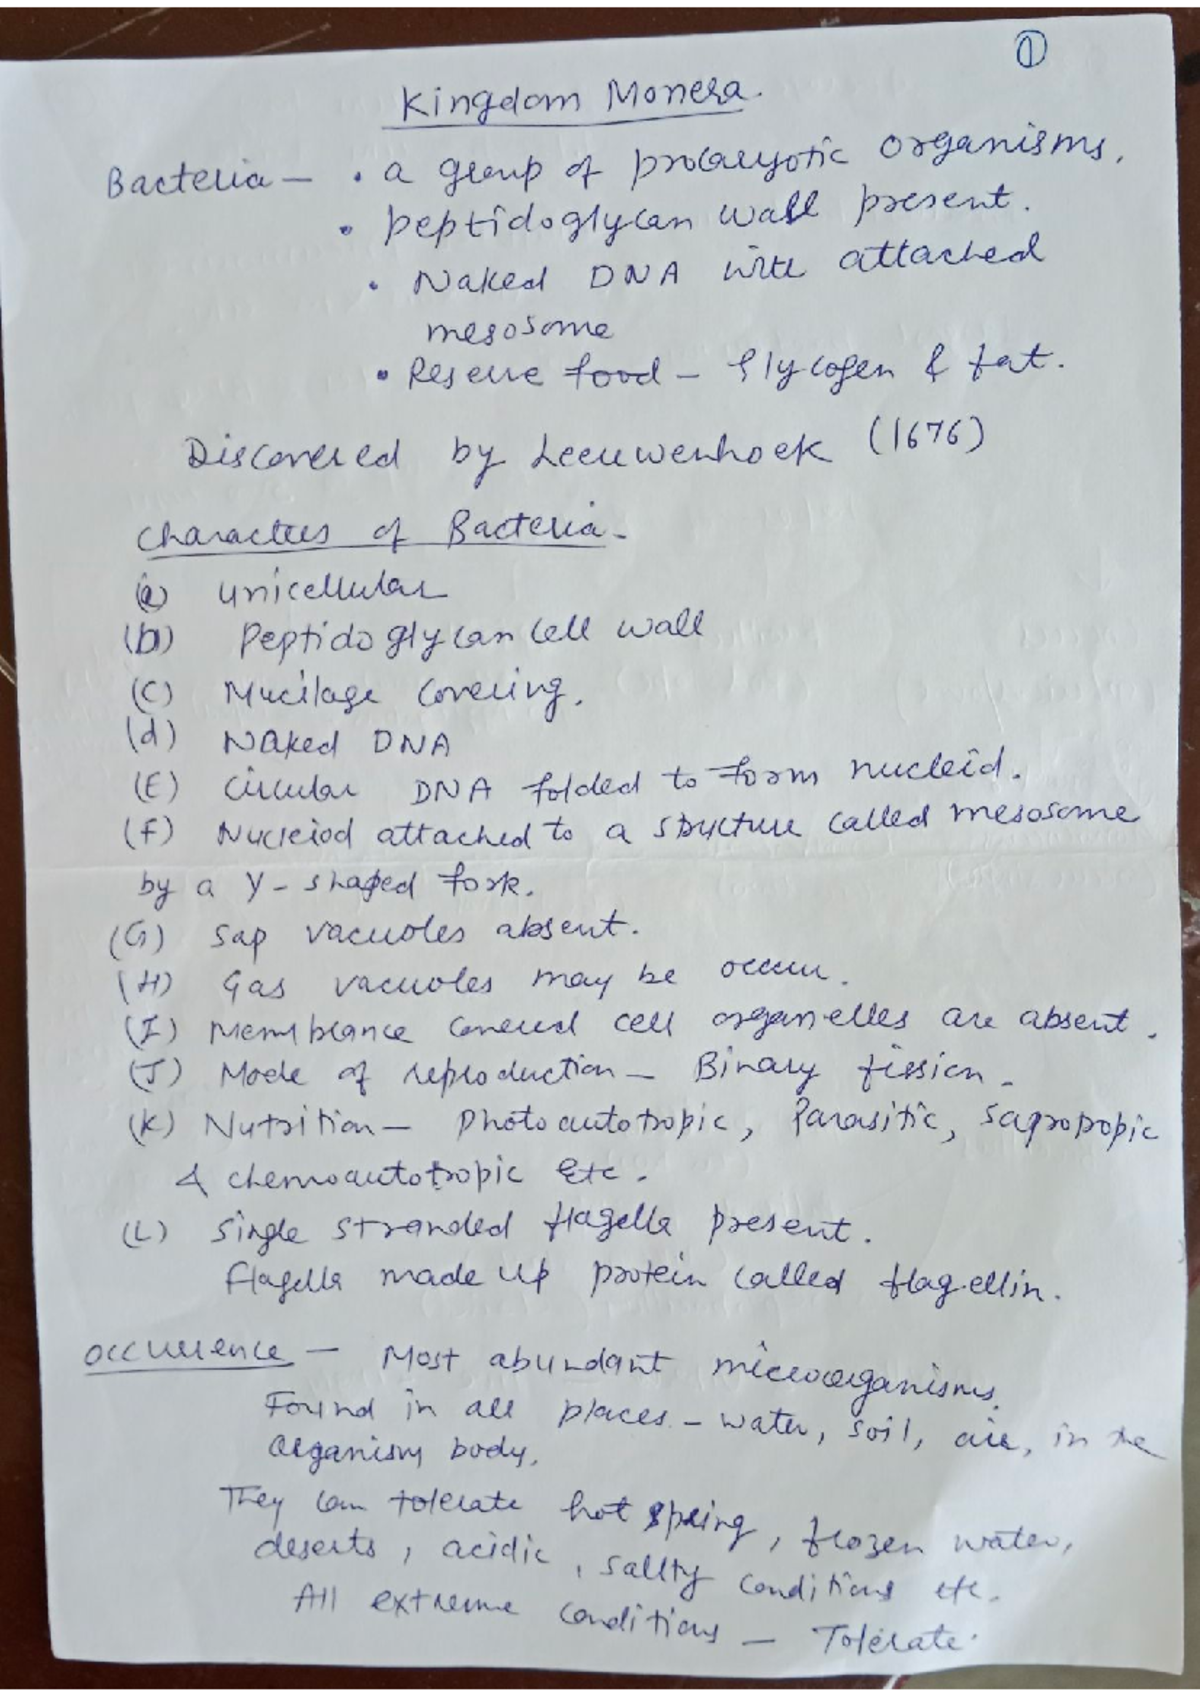 ①
Kingdom Monera.
Bacteria – • a group of procaryotic organisms.
• peptidoglycan wall present.
• Naked DNA with attached
mesosome
• Reserve food – Glycogen & fat.
Discovered by Leeuwenhoek (1676)
Characters of Bacteria –
(a) unicellular
(b) Peptidoglycan cell wall
(C) Mucilage covering.
(d) Naked DNA
(E) Circular DNA folded to form nucleid.
(F) Nucleiod attached to a structure called mesosome
by a Y-shaped fork.
(G) Sap vacuoles absent.
(H) Gas vacuoles may be occur.
(I) Memblance covered cell organelles are absent.
(J) Mode of reproduction – Binary fission.
(K) Nutrition – Photoautotropic, Parasitic, Sapropropic
& chemoautotropic Etc.
(L) Single stranded flagella present.
Flagella made up protein called flagellin.
Occurrence – Most abundant microorganisms.
Found in all places – water, soil, air, in the
organism body.
They can tolerate hot spring, frozen water,
deserts, acidic, sallty conditions etc.
All extreme conditions – Tolerate.